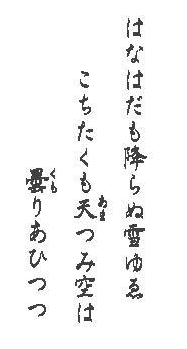 はなはだも降らぬ雪ゆゑ
こちたくも天つみ空は
曇りあひつつ